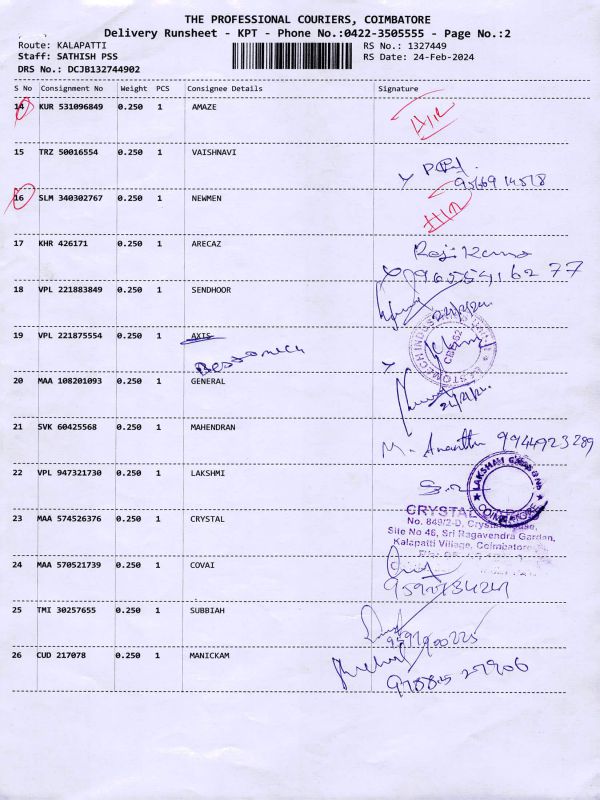 THE PROFESSIONAL COURIERS, COIMBATORE
Delivery Runsheet - KPT - Phone No.:0422-3505555 - Page No.:2
Route: KALAPATTI
RS No.: 1327449
Staff: SATHISH PSS
RS Date: 24-Feb-2024
DRS No.: DCJB132744902
S No Consignment No Weight PCS Consignee Details Signature
14 KUR 531096849 0.250 1 AMAZE
15 TRZ 50016554 0.250 1 VAISHNAVI
16 SLM 340302767 0.250 1 NEWMEN
17 KHR 426171 0.250 1 ARECAZ
18 VPL 221883849 0.250 1 SENDHOOR
19 VPL 221875554 0.250 1 AXIS
20 MAA 108201093 0.250 1 GENERAL
21 SVK 60425568 0.250 1 MAHENDRAN
M. Ananthi 9944923289
22 VPL 947321730 0.250 1 LAKSHMI
23 MAA 574526376 0.250 1 CRYSTAL
CRYSTAL
No. 849/2-D, Crystal House,
Site No 46, Sri Ragavendra Garden,
Kalapatti Village, Coimbatore
24 MAA 570521739 0.250 1 COVAI
25 TMI 30257655 0.250 1 SUBBIAH
26 CUD 217078 0.250 1 MANICKAM